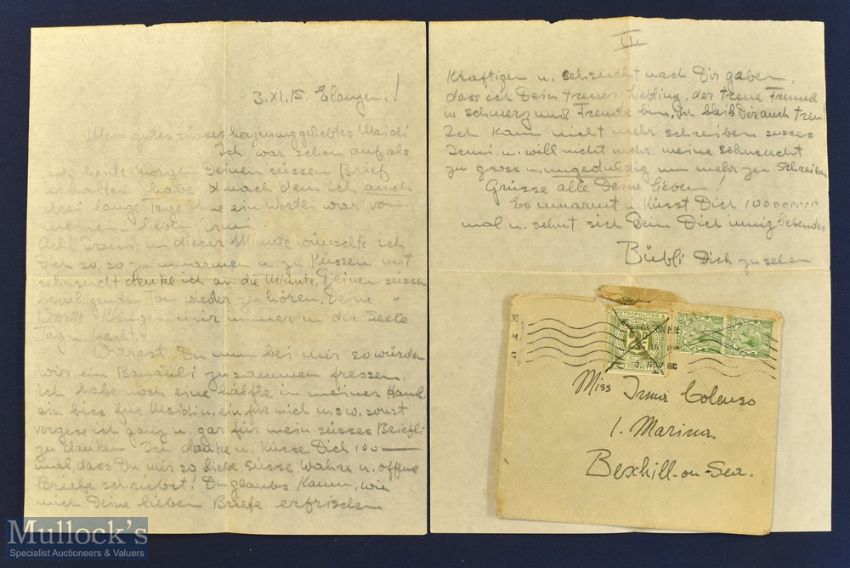 3.XI.15. Erlangen!
Mein gutes süsses herzinniggeliebtes Maidi
Ich war schon auf als
ich heute morgen Deinen süssen Brief
erhalten habe, nach dem ich auch
drei lange Tage ohne ein Wortli war von
meinem lieben Irmi.
Ach Irmi, in dieser Minute wünschte ich
Dich so, so zu umarmen u. zu Küssen, mit
sehnsucht denke ich an die Minute, Deinen süssen
beruhigenden Ton wieder zu hören, Deine
Worte Klingen mir immer in der Seele
Tag u. Nacht.
Warest Du nun bei mir so würden
wir ein Banauli zusammen fressen,
ich habe noch eine hälfte in meiner Hand
ein biss für Maidi u. ein für mich u.s.w. sonst
vergess ich ganz u. gar für mein süsses Briefli
zu danken. Ich danke u. Küsse Dich 100
mal, dass Du mir so liebe süsse, wahre u. offene
Briefe schriebst! Du glaubst Kaum, wie
mich Deine lieben Briefe erfrischen
II.
Kräftigen u. sehnsucht nach Dir gaben,
dass ich Dein treuer Liebling, der treue Freund
in schmerz und Freude bin, bleib Dir auch treu
Ich Kann nicht mehr schreiben süsses
Irmi u. will nicht mehr, meine sehnsucht
zu gross u. ungeduldig um mehr zu schreiben
Grüsse alle Deine lieben!
Es umarmt u. Küsst Dich 10000000
mal u. sehnt sich Dein Dich innig liebendes
Bübli Dich zu sehen
METROPOLITAN
Miss Irma Colenso
1. Marina
Bexhill-on-Sea.
Mullock's
Specialist Auctioneers & Valuers